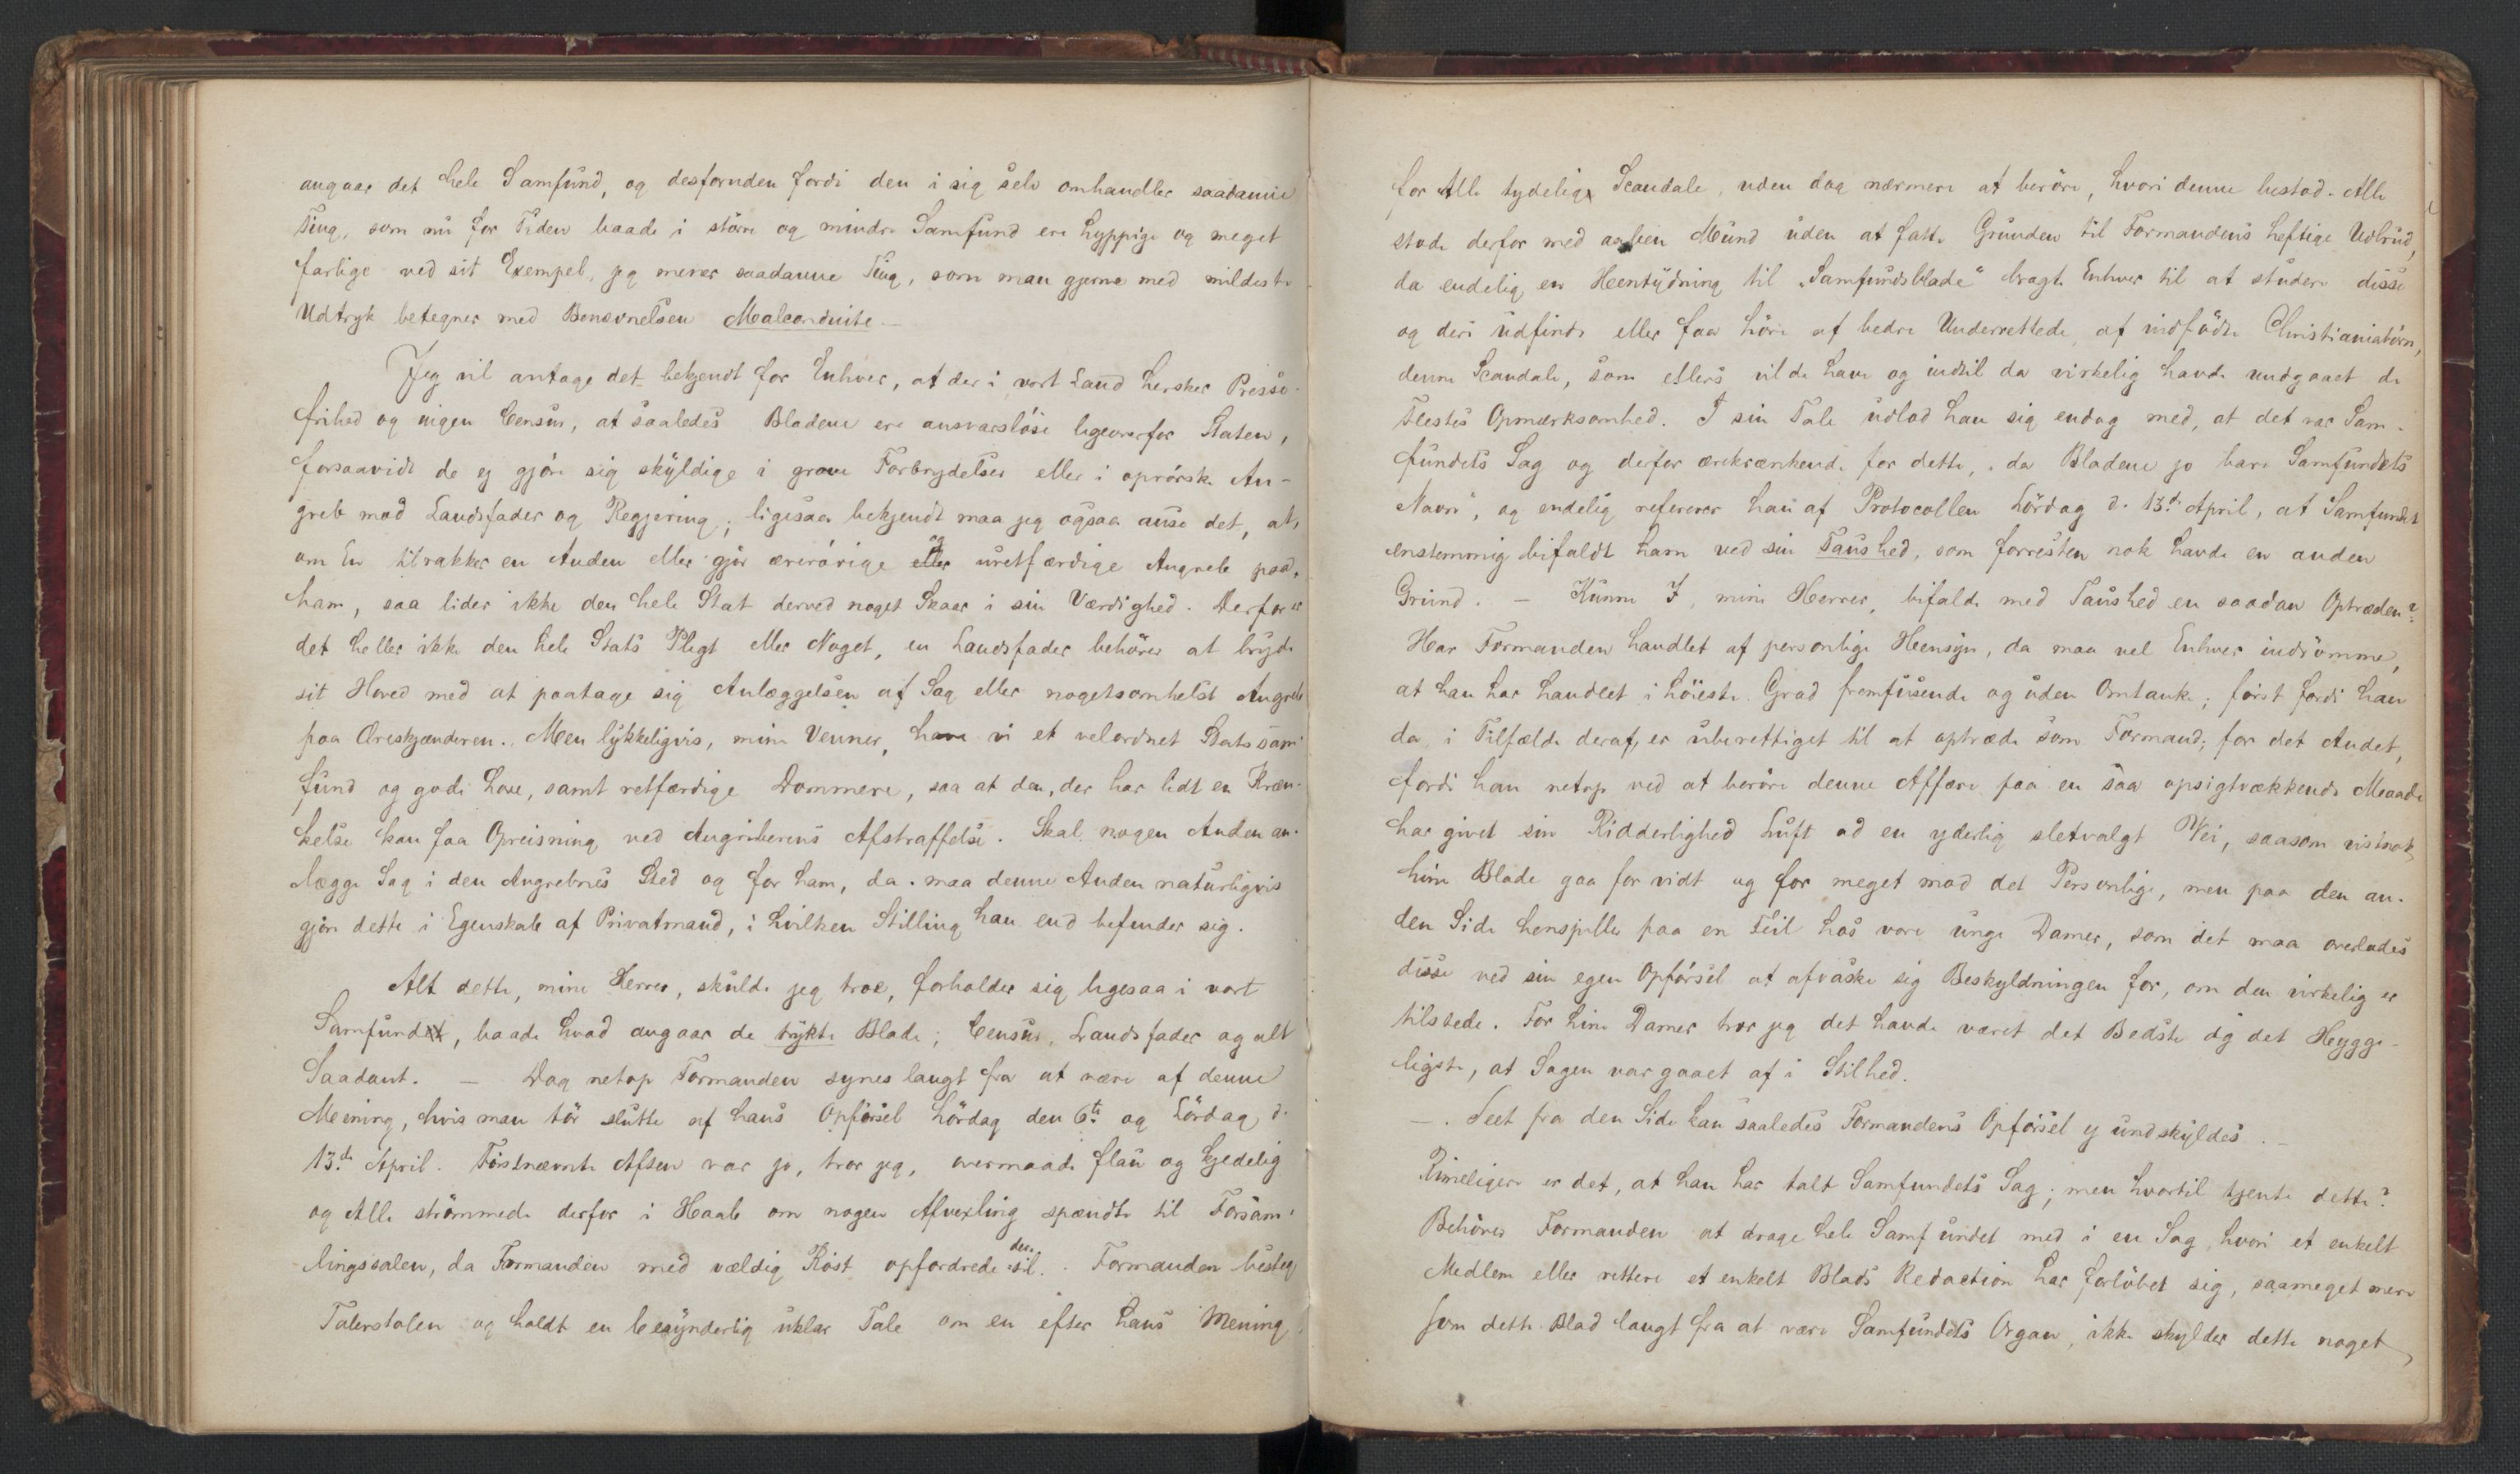 angaar det hele Samfund, og desforuden fordi den i sig selv omhandler saadanne
Ting, som nu for Tiden baade i större og mindre Samfund ere hyppige og meget
farlige ved sit Exempel, jeg mener saadanne Ting, som man gjerne med mildeste
Udtryk betegner med Benævnelsen Malconduite.—
Jeg vil antage det bekjendt for Enhver, at der i vort Land hersker Presse-
frihed og ingen Censur, at saaledes Bladene ere ansvarslöse ligeoverfor Staten,
forsaavidt de ej gjöre sig skyldige i grove Forbrydelser eller i oprörske An-
greb mod Landsfader og Regjering; ligesaa bekjendt maa jeg ogsaa anse det, at,
om En tilrakker en Anden eller gjör ærerörige og uretfærdige Angreb paa
ham, saa lider ikke den hele Stat derved noget Skaar i sin Værdighed. Derfor er
det heller ikke den hele Stats Pligt eller Noget, en Landsfader behöver at bryde
sit Hoved med at paatage sig Anlæggelsen af Sag eller nogetsomhelst Angreb
paa Æreskjænderen. Men lykkeligvis, mine Venner, have vi et velordnet Statssam-
fund og gode Love, samt retfærdige Dommere, saa at den, der har lidt en Kræn-
kelse kan faa Opreisning ved Angriberens Afstraffelse. Skal nogen Anden an-
lægge Sag i den Angrebnes Sted og for ham, da maa denne Anden naturligvis
gjöre dette i Egenskab af Privatmand, i hvilken Stilling han end befinder sig.
Alt dette, mine Herrer, skulde jeg troe, forholder sig ligesaa i vort
Samfund, baade hvad angaar de trykte Blade; Censur, Landsfader og alt
Saadant. — Dog netop Formanden synes langt fra at være af denne
Mening, hvis man tör slutte af hans Opförsel Lördag den 6te og Lördag d.
13de April. Förstnævnte Aften var jo, tror jeg, overmaade flau og kjedelig
og Alle strömmede derfor i Haab om nogen Afvexling spændte til Forsam-
lingssalen, da Formanden med vældig Röst opfordrede dertil. Formanden besteg
Talerstolen og holdt en besynderlig uklar Tale om en efter hans Mening
for Alle tydelig Scandale, uden dog nærmere at beröre, hvori denne bestod. Alle
stode derfor med aaben Mund uden at fatte Grunden til Formandens heftige Udbrud,
da endelig en Heentydning til „Samfundsblade“ bragte Enhver til at studere disse
og deri udfinde eller faa höre af bedre Underrettede, af indfödte Christianiabörn,
denne Scandale, som ellers vilde have og indtil da virkelig havde undgaaet de
Flestes Opmærksomhed. I sin Tale udlod han sig endog med, at det var Sam-
fundets Sag og derfor ærekrænkende for dette, „da Bladene jo bare Samfundets
Navn“, og endelig refererer han af Protocollen Lördag d. 13de April, at Samfundet
enstemmig bifaldt ham ved sin Taushed, som forresten nok havde en anden
Grund. — Kunne I, mine Herrer, bifalde med Taushed en saadan Optræden?
Har Formanden handlet af personlige Heensyn, da maa vel Enhver indrömme,
at han har handlet i höieste Grad fremfusende og uden Omtanke; först fordi han
da, i Tilfælde deraf, er uberettiget til at optræde som Formand; for det Andet,
fordi han netop ved at beröre denne Affære paa en saa opsigtvækkende Maade
har givet sin Ridderlighed Luft ad en yderlig sletvalgt Vei, saasom vistnok
hine Blade gaa for vidt og for meget mod det Personlige, men paa den an-
den Side henspiller paa en Feil hos vore unge Damer, som det maa overlades
disse ved sin egen Opförsel at afvaske sig Beskyldningen for, om den virkelig er
tilstede. For hine Damer tror jeg det havde været det Bedste og det Hygge-
ligste, at Sagen var gaaet af i Stilhed.
—. Seet fra den Side kan saaledes Formandens Opförsel ej undskyldes. —
Rimeligere er det, at han har talt Samfundets Sag; men hvortil tjente dette?
Behöver Formanden at drage hele Samfundet med i en Sag, hvori et enkelt
Medlem eller rettere et enkelt Blads Redaction har forlöbet sig, saameget mere
som dette Blad langt fra at være Samfundets Organ, ikke skylder dette noget